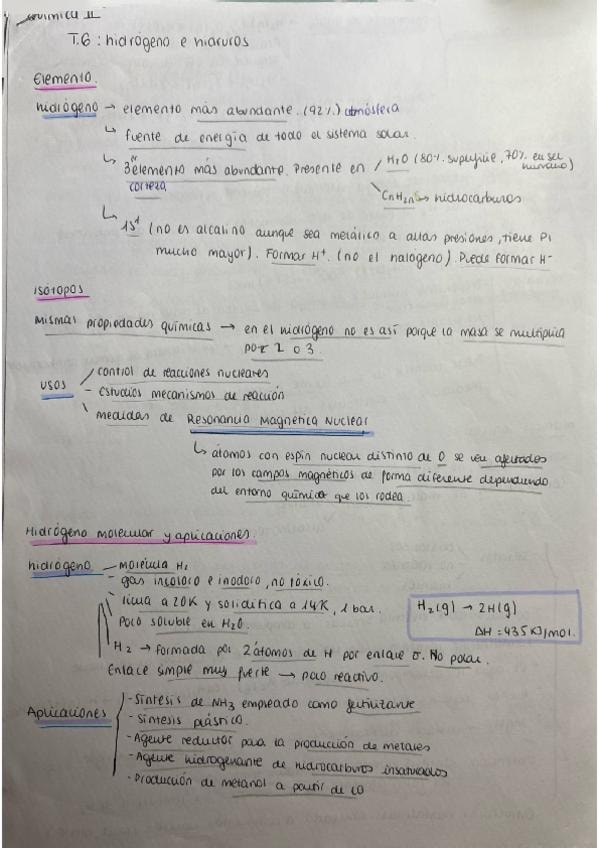 Química II
T.6: hidrógeno e hidruros
Elemento.
hidrógeno → elemento más abundante. (92%) atmósfera
↳ fuente de energía de todo el sistema solar.
↳ 3er elemento más abundante. Presente en / H2O (80% superficie, 70% en ser humano)
corteza \ CnH2n → hidrocarburos
↳ 1s1 (no es alcalino aunque sea metálico a altas presiones, tiene PI
mucho mayor). Formar H+. (no el halógeno). Puede formar H-
isótopos
Mismas propiedades químicas → en el hidrógeno no es así porque la masa se multiplica
por 2 o 3.
usos / control de reacciones nucleares
- estudios mecanismos de reacción
\ medidas de Resonancia Magnética Nuclear
↳ átomos con espín nuclear distinto de 0 se ven afectados
por los campos magnéticos de forma diferente dependiendo
del entorno químico que los rodea.
Hidrógeno molecular y aplicaciones.
hidrógeno - molécula H2
- gas incoloro e inodoro, no tóxico.
licua a 20K y solidifica a 14K, 1 bar.
Poco soluble en H2O.
H2 → formada por 2 átomos de H por enlace σ. No polar.
Enlace simple muy fuerte → poco reactivo.
H2(g) → 2H(g)
ΔH = 435 KJ/mol.
Aplicaciones - Síntesis de NH3 empleado como fertilizante
- Síntesis plástico.
- Agente reductor para la producción de metales
- Agente hidrogenante de hidrocarburos insaturados
- Producción de metanol a partir de CO